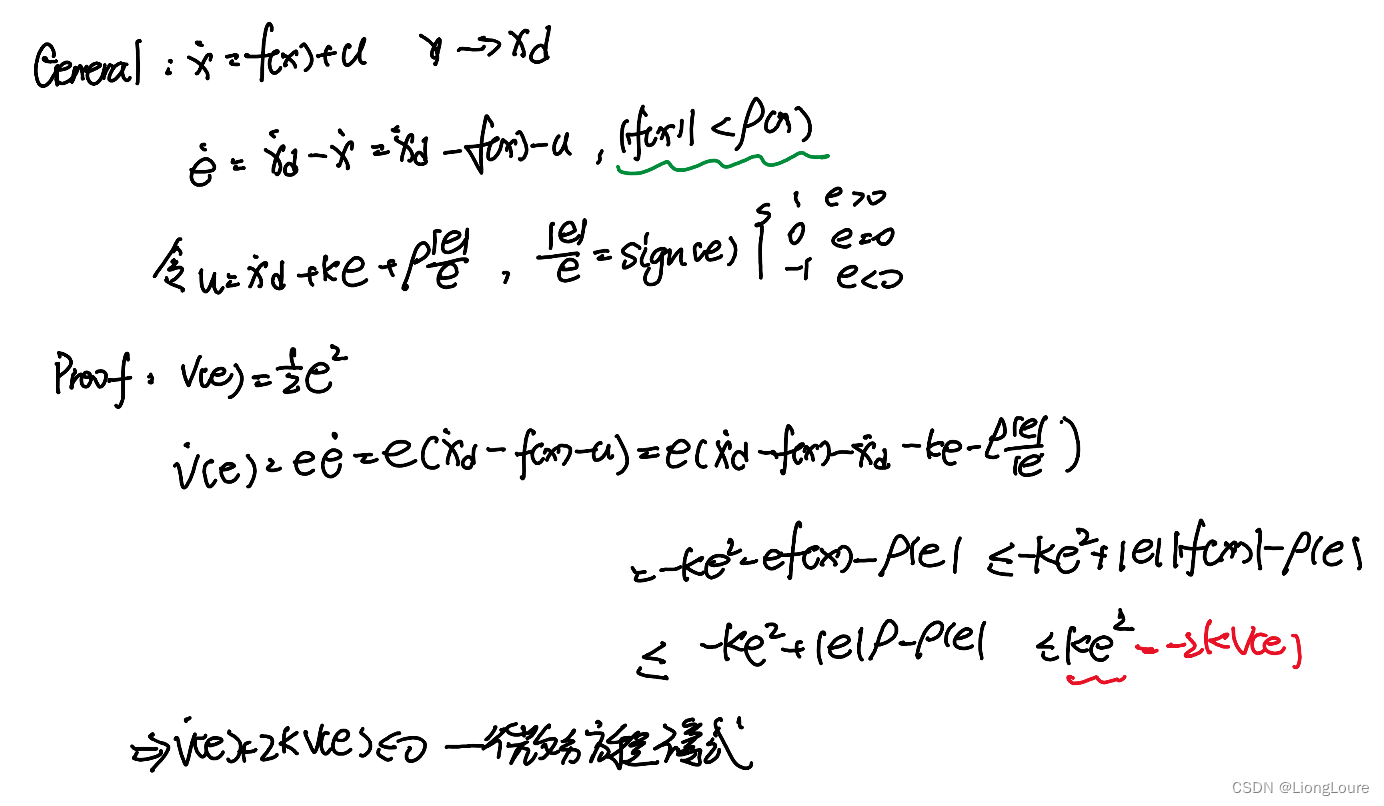 General : ẋ = f(x) + u x → xd
ė = ẋd - ẋ = ẋd - f(x) - u , |f(x)| < ρ(x)
令 u = ẋd + ke + ρ|e|/e , |e|/e = sign(e) { 1 e>0
0 e=0
-1 e<0
Proof : V(e) = 1/2 e²
V̇(e) = eė = e(ẋd - f(x) - u) = e(ẋd - f(x) - ẋd - ke - ρ|e|/e)
= -ke² - ef(x) - ρ|e| ≤ -ke² + |e||f(x)| - ρ|e|
≤ -ke² + |e|ρ - ρ|e| ≤ ke² = -2kV(e)
⇒ V̇(e)+2kV(e) ≤ 0 一 方程 式
CSDN @LiongLoure